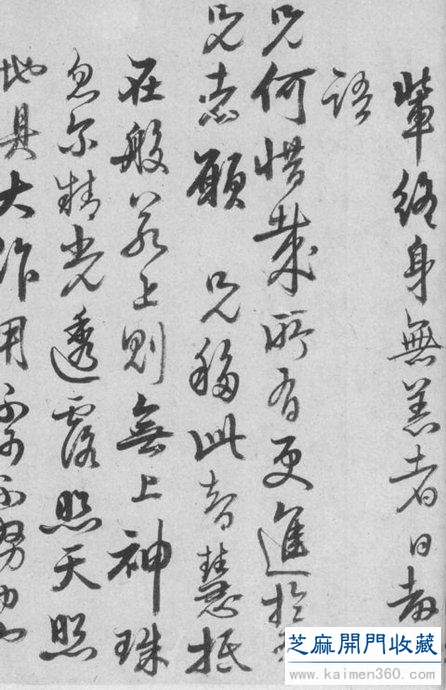 輩終身無者日
語
兄何惜所有更進於
兄志願 兄移此智慧抵
在般若上則無上神珠
忽尔精光透露照天照
地具大作用不可不努力
芝麻開門收藏
www.kaimen360.com